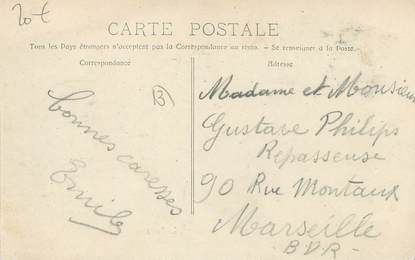 20 €
CARTE POSTALE
Tous les Pays étrangers n'acceptent pas la Correspondance au recto. - Se renseigner à la Poste.
Correspondance
Adresse
B
bonnes caresses
Emile
Madame et Monsieur
Gustave Philips
Repasseuse
90 Rue Montaux
Marseille
B.D.R -